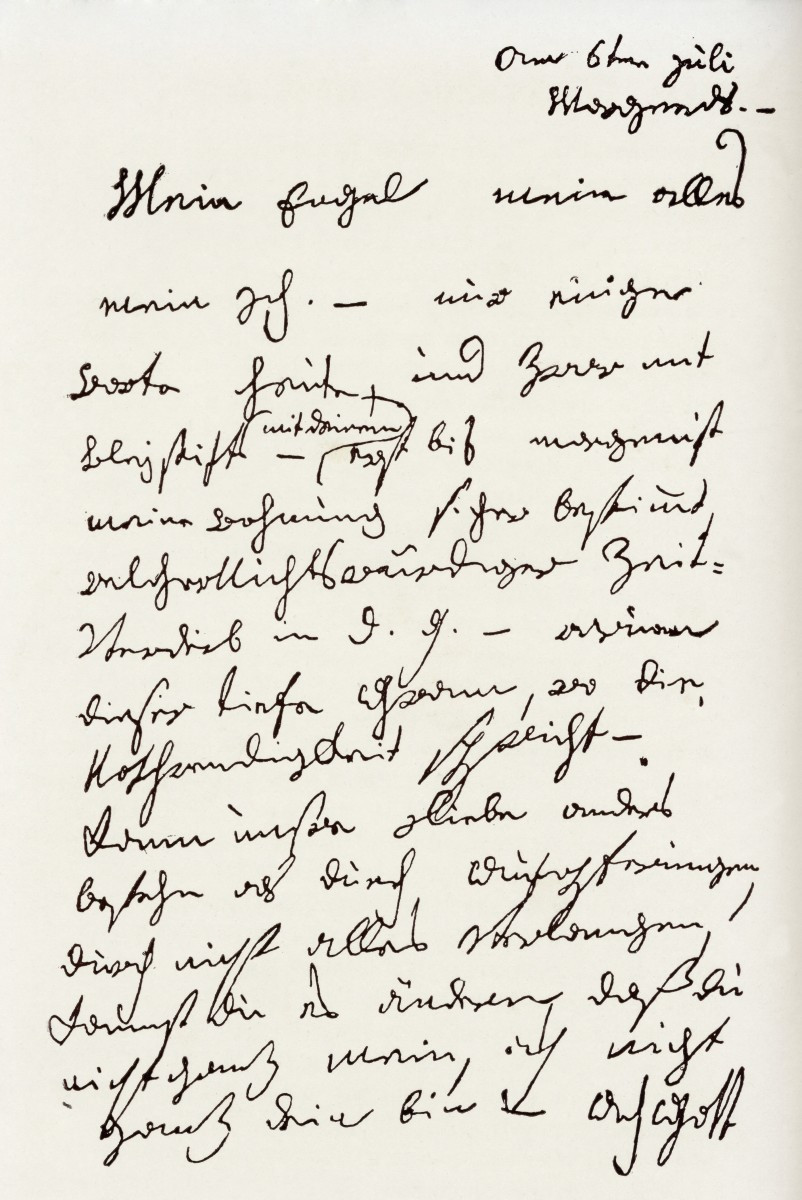 am 6ten juli
Morgends. –
Mein Engel mein alles
mein Ich. – nur einige
worte heute, und zwar mit
bleystift – (mit deinem) erst bis morgen ist
meine wohnung sicher bestimmt,
welcher Nichtswürdiger Zeit-
Verderb in d. g. – warum
dieser tiefe Gram, wo die
Nothwendigkeit spricht –
Kann unsre Liebe anders
bestehn als durch Aufopferungen,
durch nicht alles verlangen,
kannst du es ändern, daß du
nicht ganz mein, ich nicht
ganz dein bin – Ach Gott